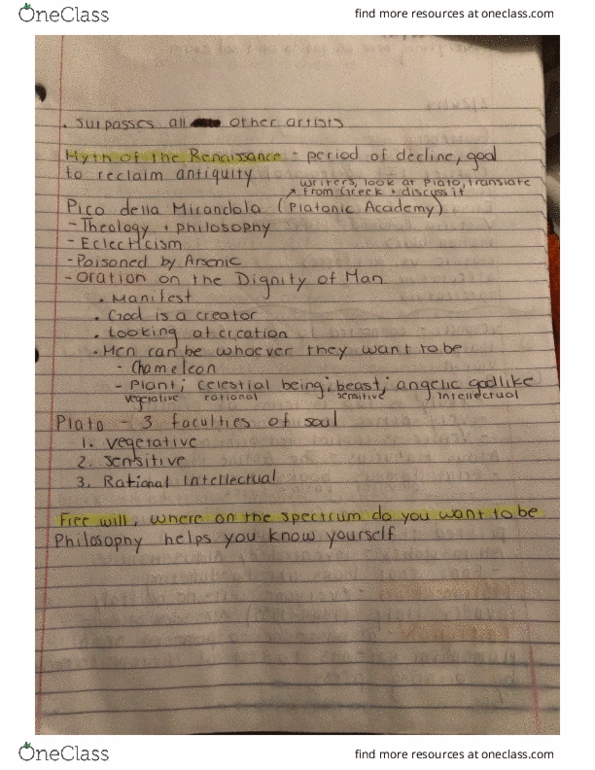 OneClass
find more resources at oneclass.com
• Surpasses all other artists
Myth of the Renaissance - period of decline, goal
to reclaim antiquity
writers, look at Plato, translate
from Greek + discuss it
Pico della Mirandola (Platonic Academy)
- Theology + philosophy
- Eclecticism
- Poisoned by Arsenic
- Oration on the Dignity of Man
• Manifest
• God is a creator
• Looking at creation
• Men can be whoever they want to be
- Chameleon
- Plant; celestial being; beast; angelic godlike
vegetative rational sensitive intellectual
Plato - 3 faculties of soul
1. Vegetative
2. Sensitive
3. Rational Intellectual
Free will, where on the spectrum do you want to be
Philosophy helps you know yourself
OneClass
find more resources at oneclass.com